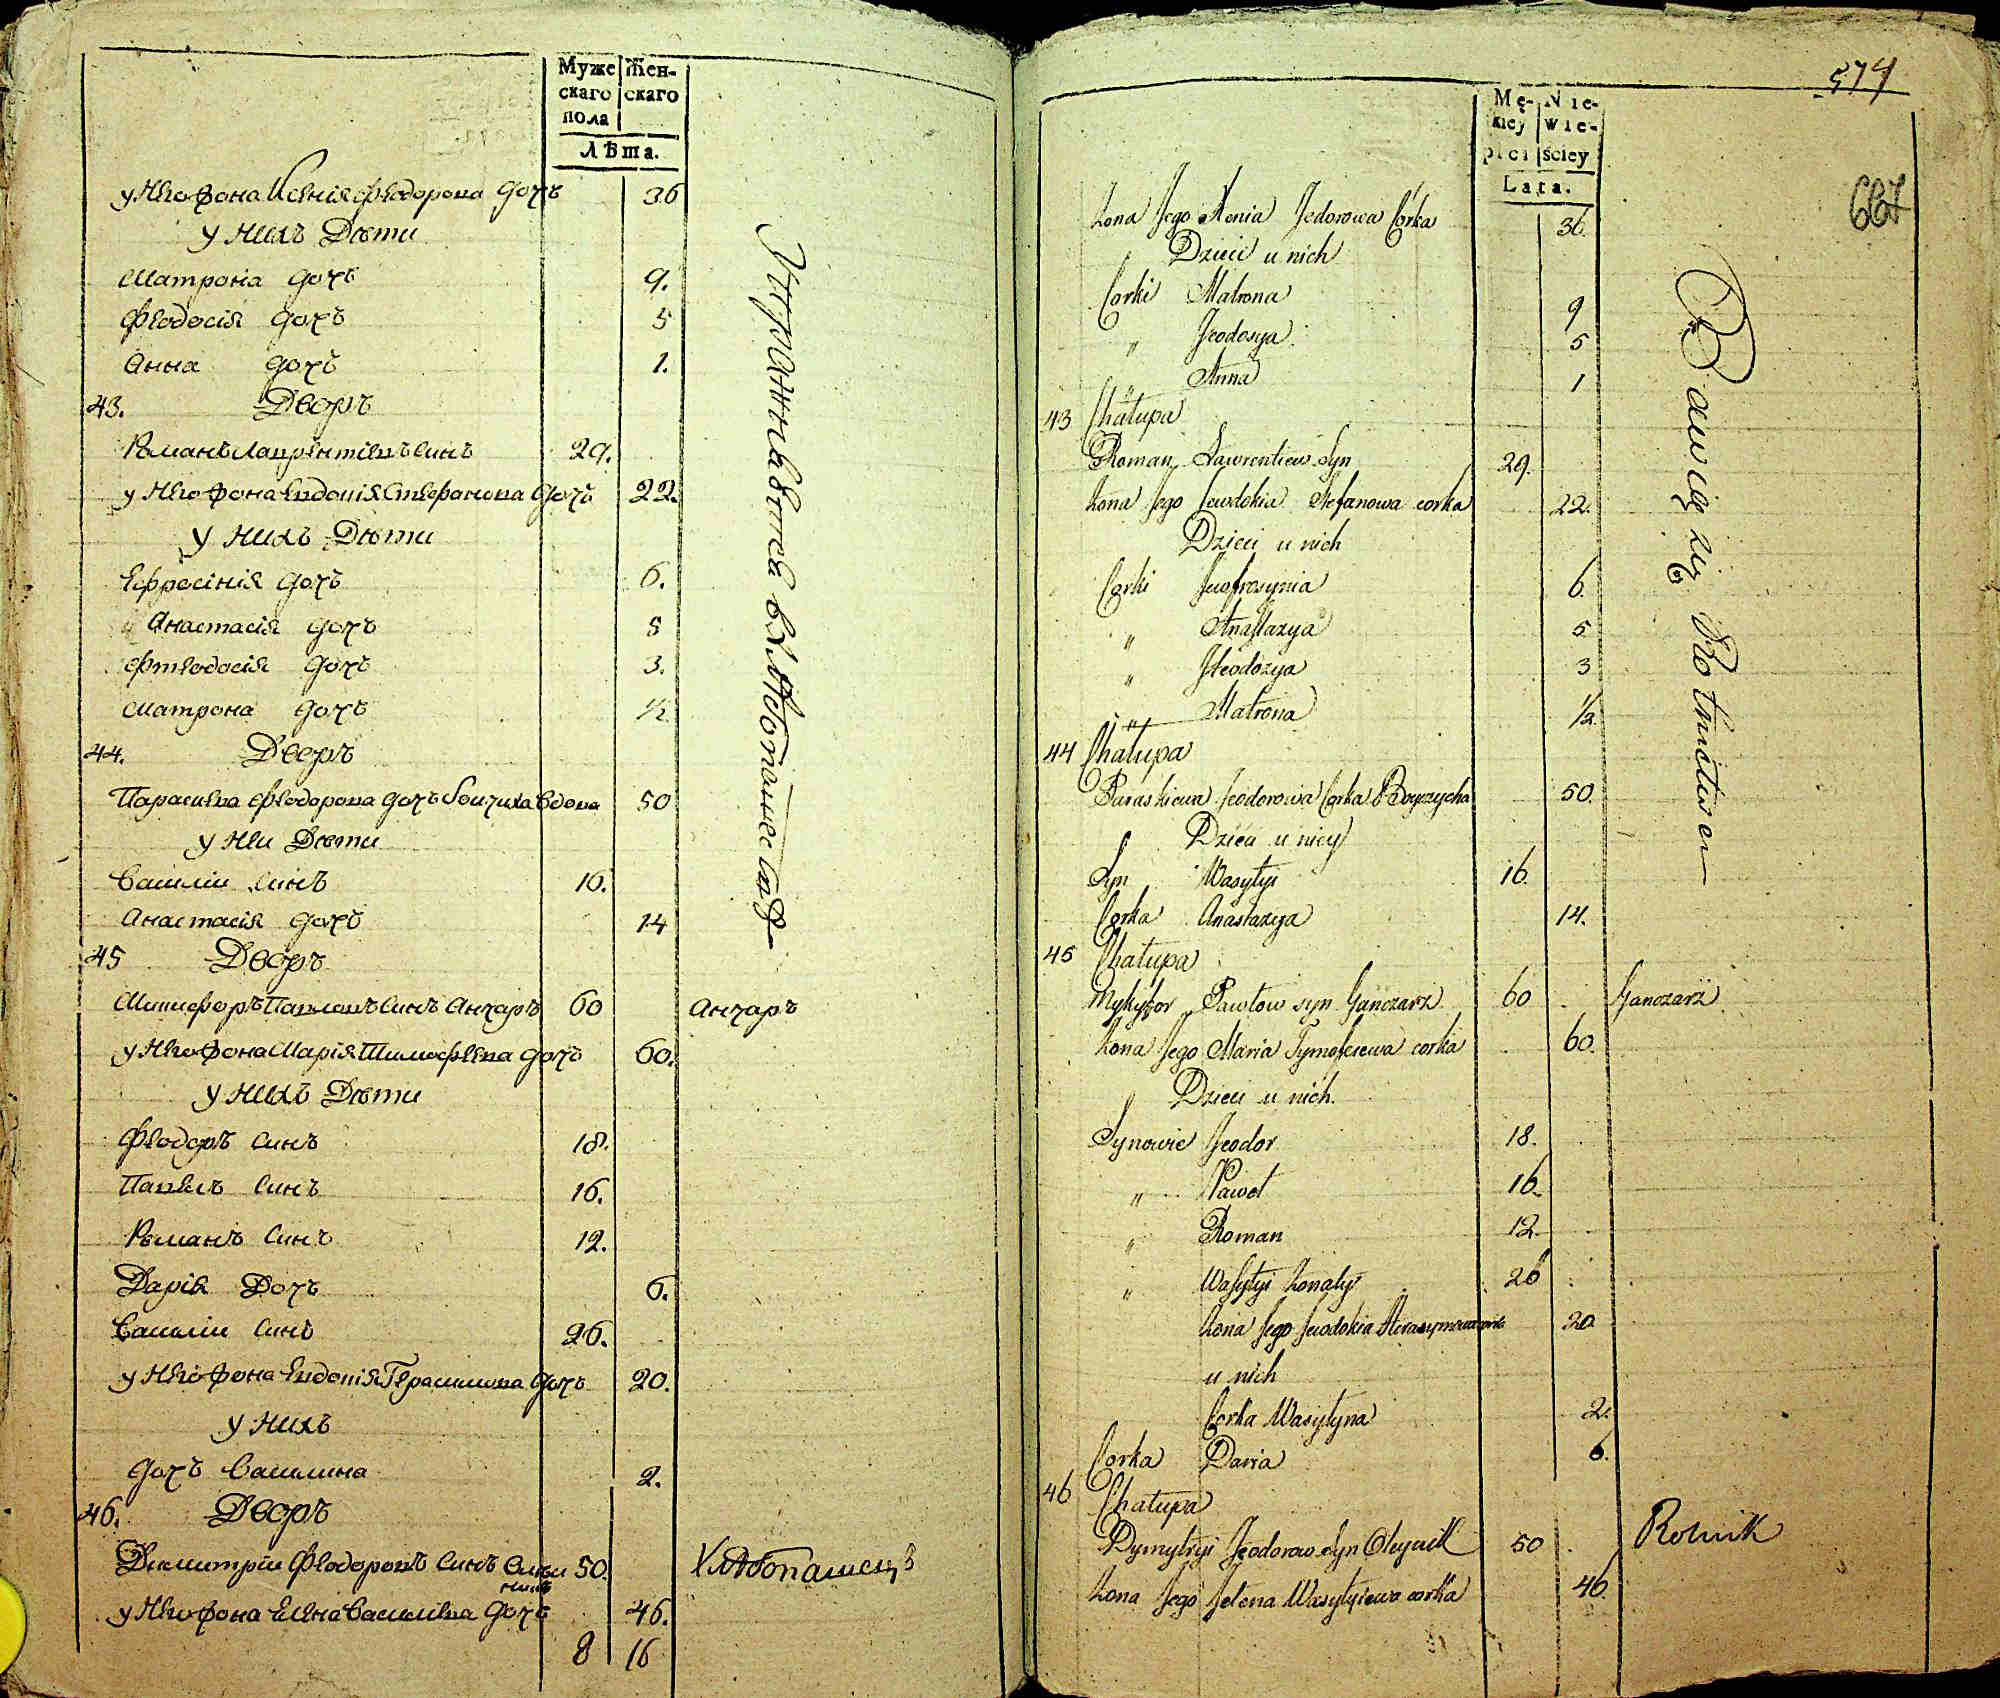 Муже
скаго
пола
Жен-
скаго
Лѣта.
у Него Жона Ксенія Федорова Дочь 36
у Нихъ Дѣти
Матрона дочь 9.
Феодосія дочь 5
Анна дочь 1.
43. Дворъ
Романъ Лаврентіевъ Синъ 29.
у Него Жона Евдокія Стефанова Дочь 22.
у Нихъ Дѣти
Ефросінія дочь 6.
Анастасія дочь 5
Фтеодосія дочь 3.
Матрона дочь 1/2
44. Дворъ
Параскева Феодорова дочь Вдова 50
у Неи Дѣти
Василіи синъ 16.
Анастасія дочь 14
45 Дворъ
Никифоръ Павловъ Синъ Ганчаръ 60 Ганчаръ
у Него Жона Марія Тимофѣева дочь 60.
у Нихъ Дѣти
Феодоръ Синъ 18.
Павелъ Синъ 16.
Романъ Синъ 12.
Дарія Дочь 6.
Василіи Синъ 26.
у Него Жона Евдокія Герасимова дочь 20.
у Нихъ
дочь Василина 2.
46. Дворъ
Димитріи Феодоровъ Синъ Олѣйникъ 50. Хлѣбопашецъ
у Него Жона Елена Василіева дочь 46.
8 16
Упражняется в Хлѣбопашествѣ
574
667
Mę-
kiey
płci
Nie-
wie-
ściey
Lata.
Żona Jego Xenia Fedorowa Corka 36.
Dzieci u nich
Corki Matrona 9
" Feodosya 5
" Anna 1
43 Chałupa
Roman Lawrentiew Syn 29.
Żona Jego Jewdokia Stefanowa corka 22.
Dzieci u nich
Corki Jewfrosynia 6.
" Anastazya 5
" Fteodozya 3
" Matrona 1/2
44 Chałupa
Paraskiewa Feodorowa Corka 50.
Dzieci u niey
Syn Wasylyi 16.
Corka Anastazya 14.
45 Chałupa
Mykyfor Pawłow syn Ganczarz 60 Ganczarz
Żona Jego Maria Tymofeiewa corka 60.
Dzieci u nich.
Synowie Feodor 18.
" Paweł 16.
" Roman 12.
" Wasylyi Żonaty 26
Żona Jego Jewdokia Herasymowa corka 20.
u nich
Corka Wasylyna 2.
Corka Daria 6.
46 Chałupa
Dymytryi Feodorow Syn Oleynik 50 Rolnik
Żona Jego Jełena Wasylyiewa corka 46.
Bawią się Rolnictwem